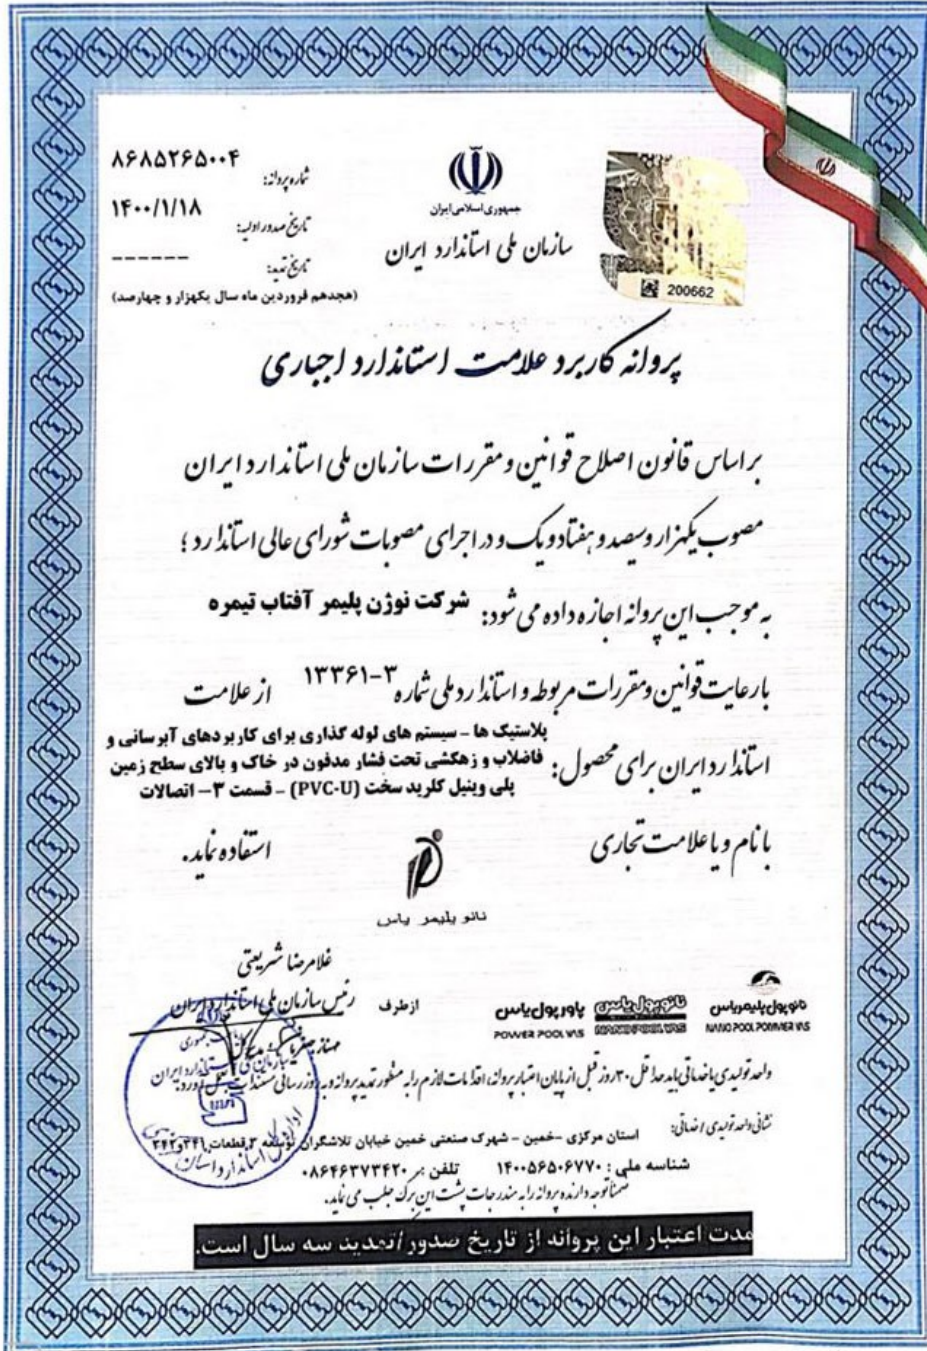 شماره پروانه: ۸۶۸۵۲۶۵۰۰۴
تاریخ صدور اولیه: ۱۴۰۰/۱/۱۸
تاریخ تمدید: ------
(هجدهم فروردین ماه سال یکهزار و چهارصد)
جمهوری اسلامی ایران
سازمان ملی استاندارد ایران
200662
پروانه کاربرد علامت استاندارد اجباری
بر اساس قانون اصلاح قوانین و مقررات سازمان ملی استاندارد ایران
مصوب یکهزار و سیصد و هفتاد و یک و در اجرای مصوبات شورای عالی استاندارد ؛
به موجب این پروانه اجازه داده می شود: شرکت نوژن پلیمر آفتاب تیمره
با رعایت قوانین و مقررات مربوطه و استاندارد ملی شماره ۳-۱۳۳۶۱ از علامت
استاندارد ایران برای محصول: پلاستیک ها – سیستم های لوله گذاری برای کاربردهای آبرسانی و
فاضلاب و زهکشی تحت فشار مدفون در خاک و بالای سطح زمین
پلی وینیل کلرید سخت (PVC-U) – قسمت ۳– اتصالات
با نام و یا علامت تجاری استفاده نماید.
نانو پلیمر یاس
غلامرضا شریعتی
رئیس سازمان ملی استاندارد ایران
از طرف
نانو پول پلیمر یاس نانو پول یاس پاور پول یاس
NANO POOL POLYMER YAS NANO POOL YAS POWER POOL YAS
واحد تولیدی یا خدماتی باید حداقل ۳۰ روز قبل از پایان اعتبار پروانه، اقدامات لازم را به منظور تمدید پروانه و به روزرسانی مستندات به عمل آورد.
نشانی واحد تولیدی / خدماتی: استان مرکزی –خمین – شهرک صنعتی خمین خیابان تلاشگران توسعه ۳ قطعات ۳۴۱و۳۴۲
شناسه ملی : ۱۴۰۰۵۶۵۰۶۷۷۰ تلفن : ۰۸۶۴۶۳۷۳۴۲۰
ضمناً توجه دارنده پروانه را به مندرجات پشت این برگ جلب می نماید.
مدت اعتبار این پروانه از تاریخ صدور /تمدید سه سال است.